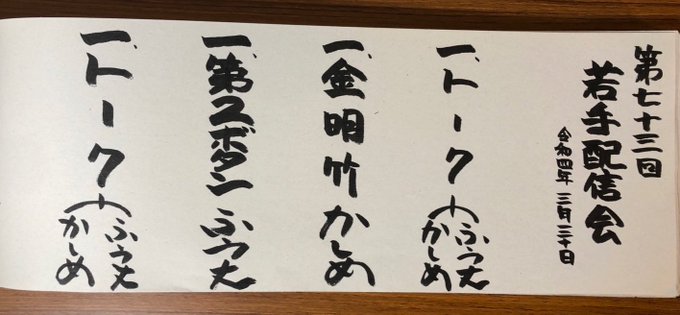 第七十三回
若手配信会
令和四年 三月 三十日
一、トーク(ふう丈
かしめ
一、金明竹 かしめ
一、第2ボタン ふう丈
一、トーク(ふう丈
かしめ